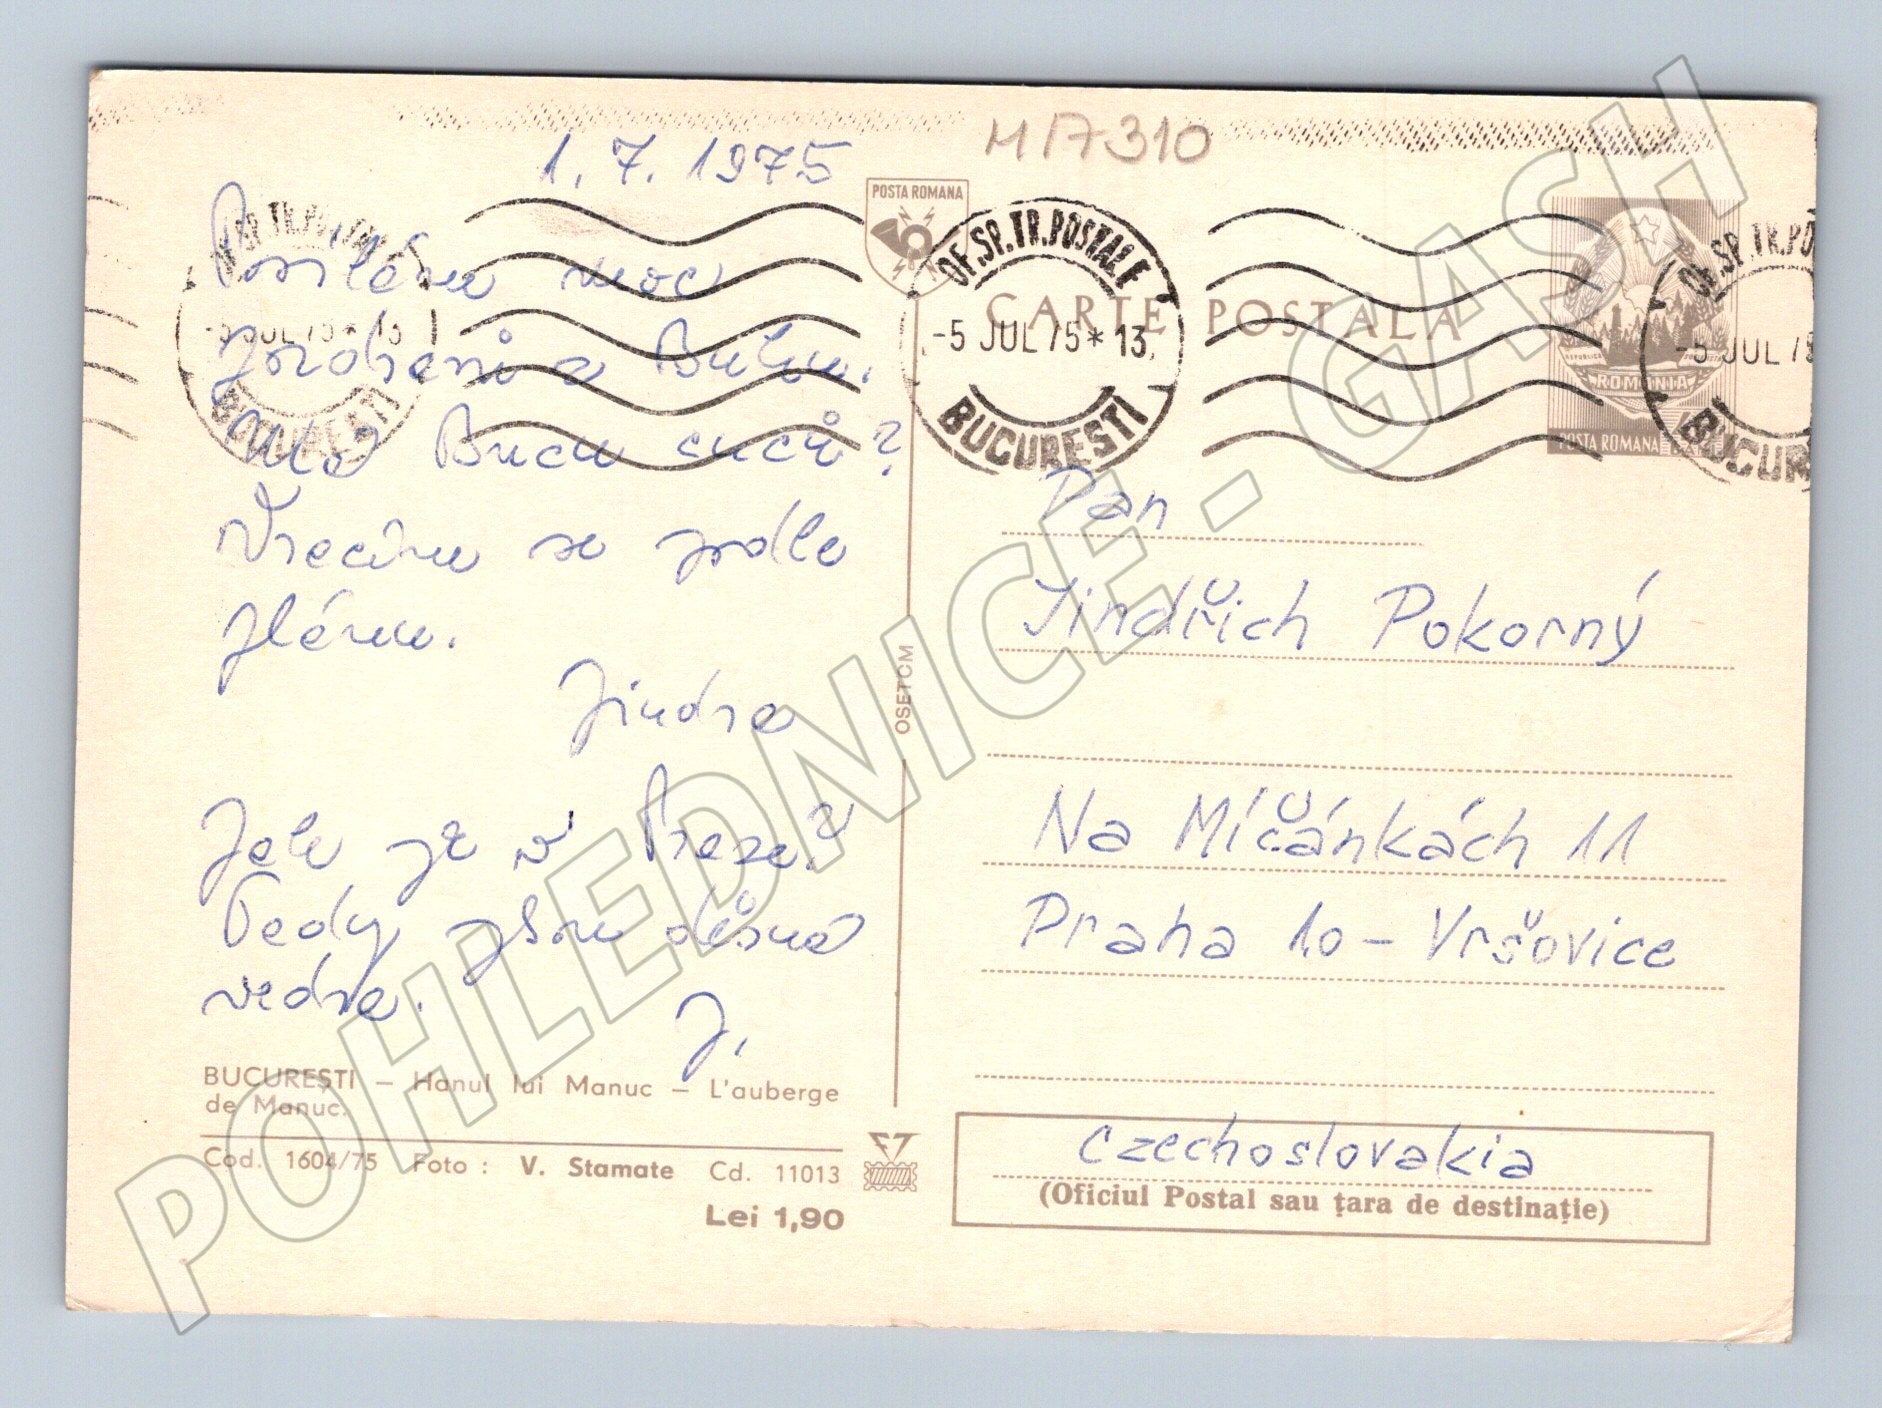 1. 7. 1975
M17310
POSTA ROMANA
OF. SP. TR. POSTALE
-5 JUL 75 * 13
BUCURESTI
OF. SP. TR. POSTALE
-5 JUL 75 * 13
BUCURESTI
OF. SP. TR. PO
-5 JUL 75
BUCUR
CARTE POSTALA
REPUBLICA
ROMANIA
POSTA ROMANA
Posílám moc
pozdravů z
Bucu
se podle
plánu.
Jindra
Jak je v Praze?
Tedy jsou děsná
vedra.
J.
Pan
Jindřich Pokorný
Na Míčánkách 11
Praha 10 – Vršovice
Czechoslovakia
(Oficiul Postal sau țara de destinație)
OSETCM
BUCUREȘTI – Hanul lui Manuc – L'auberge
de Manuc.
Cod. 1604/75 Foto : V. Stamate Cd. 11013
Lei 1,90
POHLEDNICE - GASH